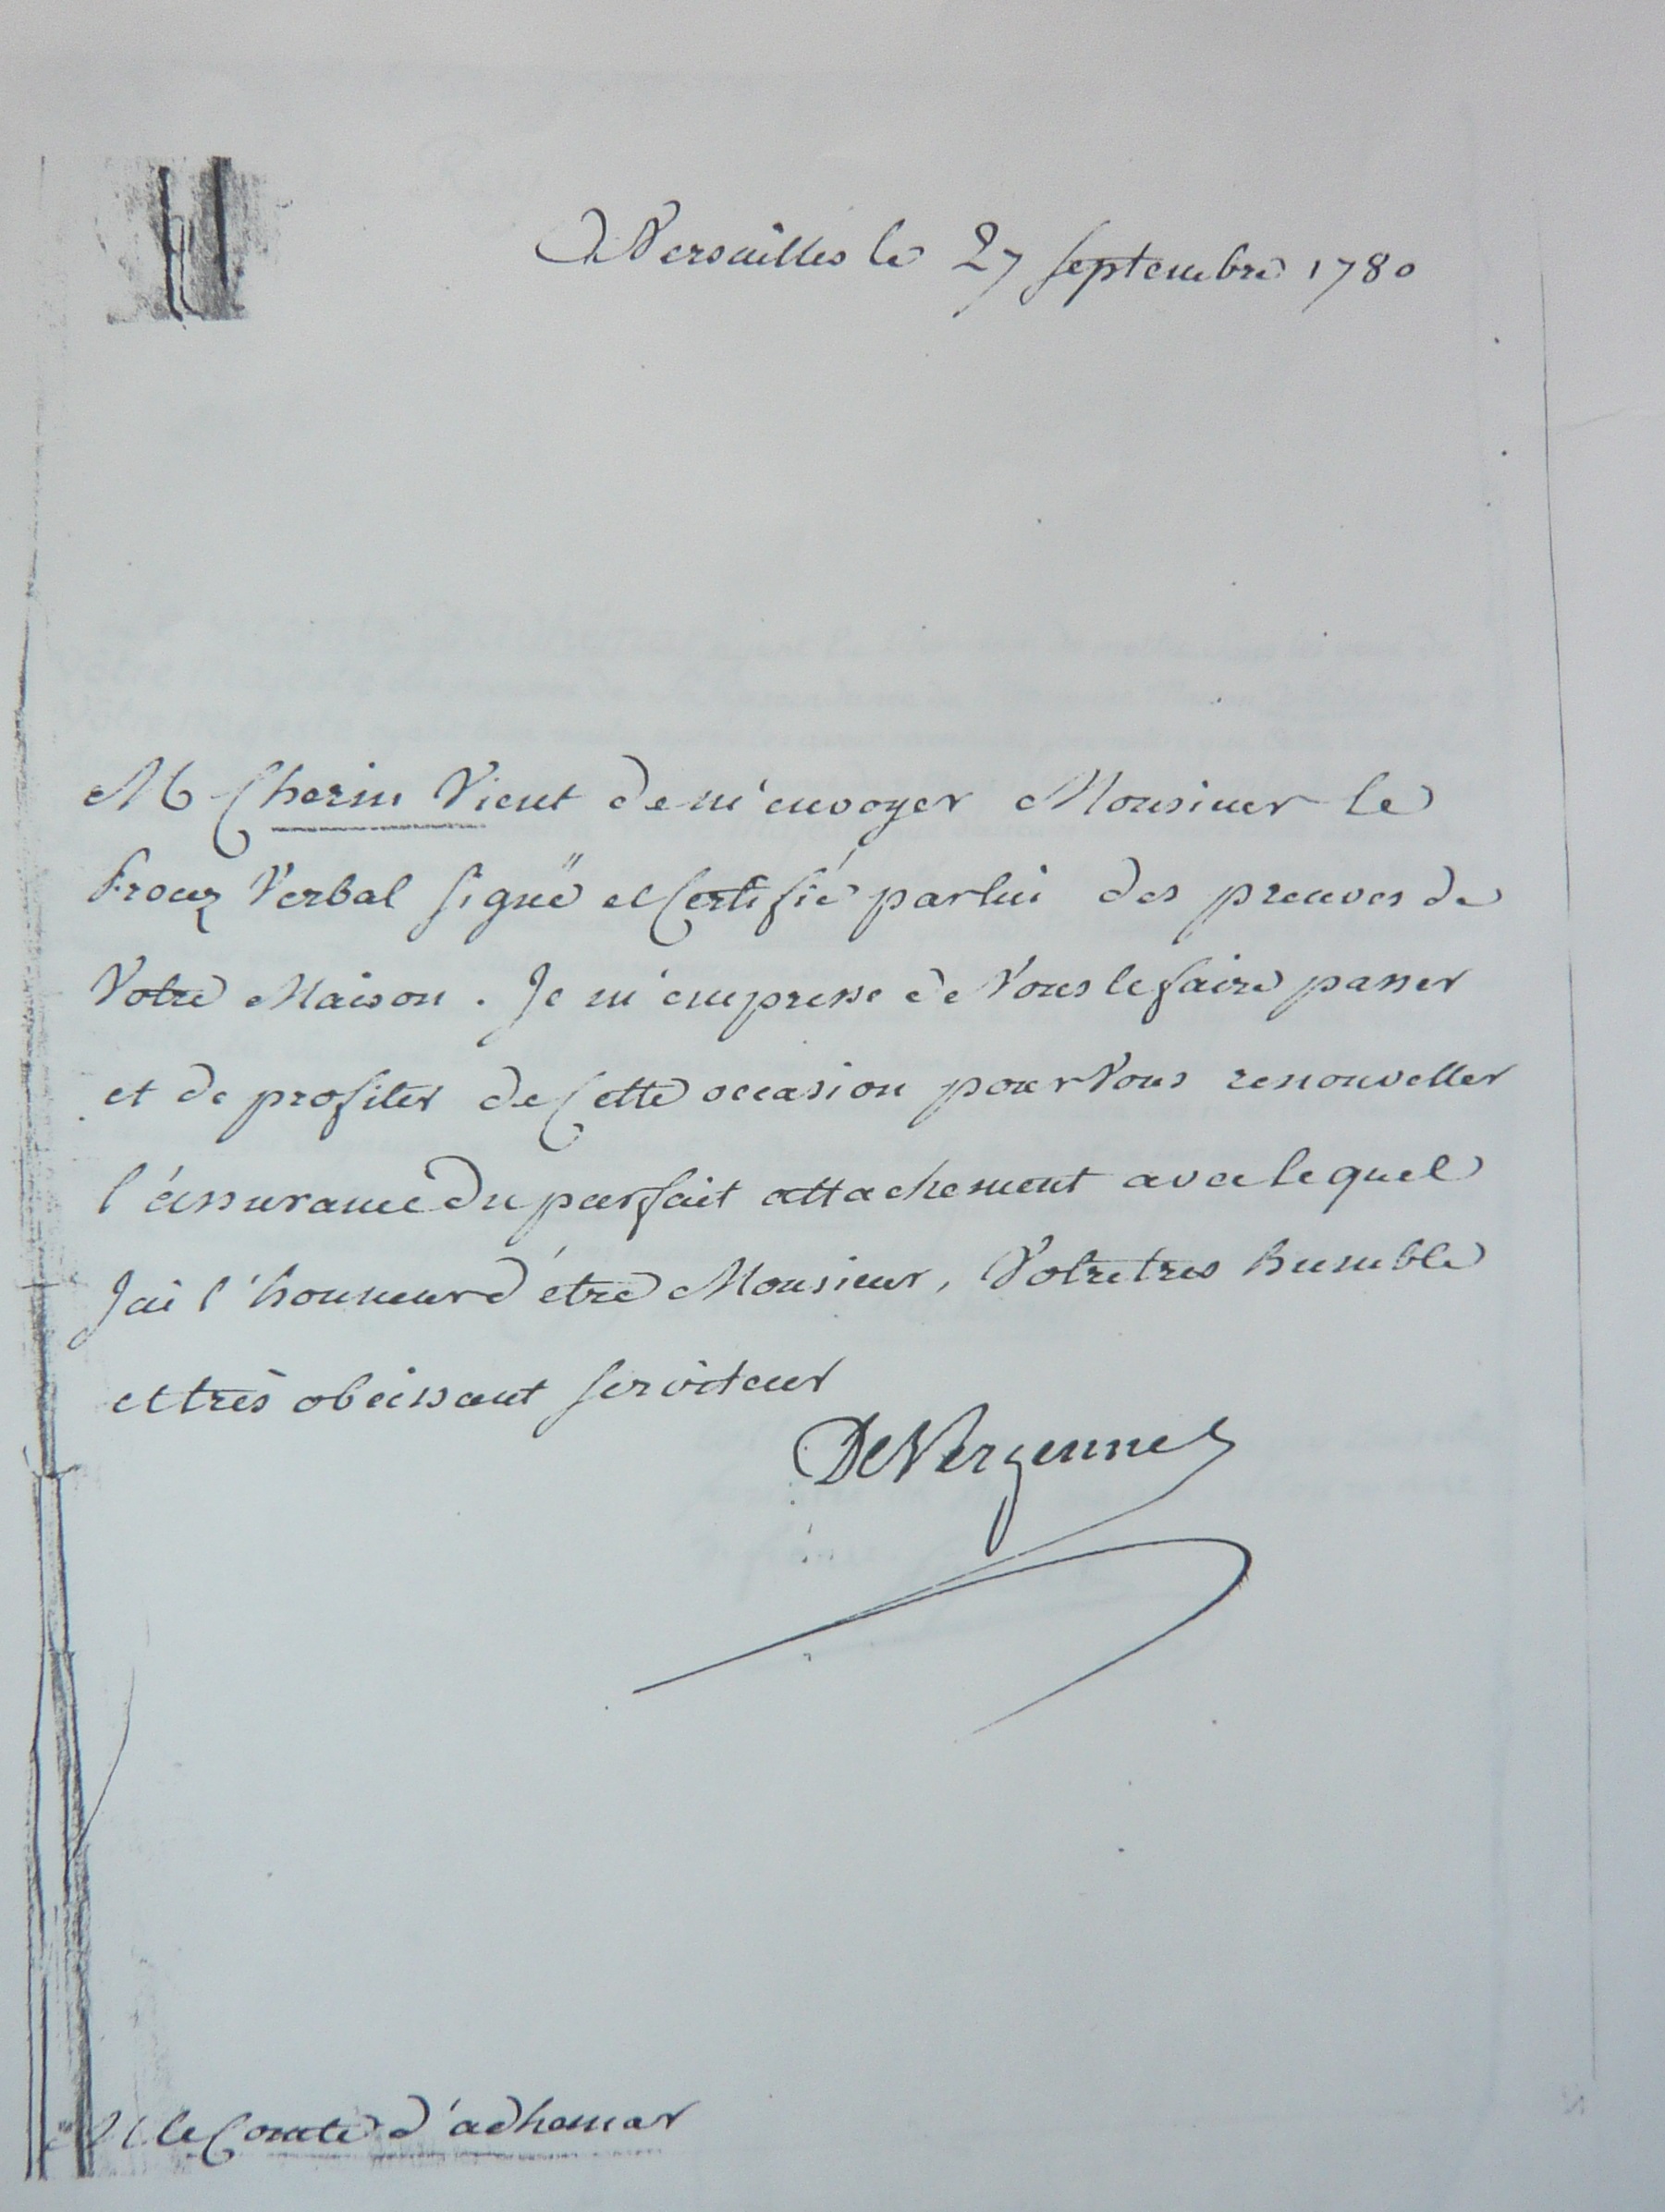 A Versailles le 27 septembre 1780
M Cherin Vient de m'envoyer Monsieur le
Procez Verbal signé et Certifié par lui des preuves de
Votre Maison. Je m'empresse de Vous le faire passer
et de profiter de Cette occasion pour Vous renouveller
l'assurance du parfait attachement avec lequel
J'ai l'honneur d'être Monsieur, Votre tres humble
et très obeissant serviteur
De Vergennes
M le Comte d'adhemar